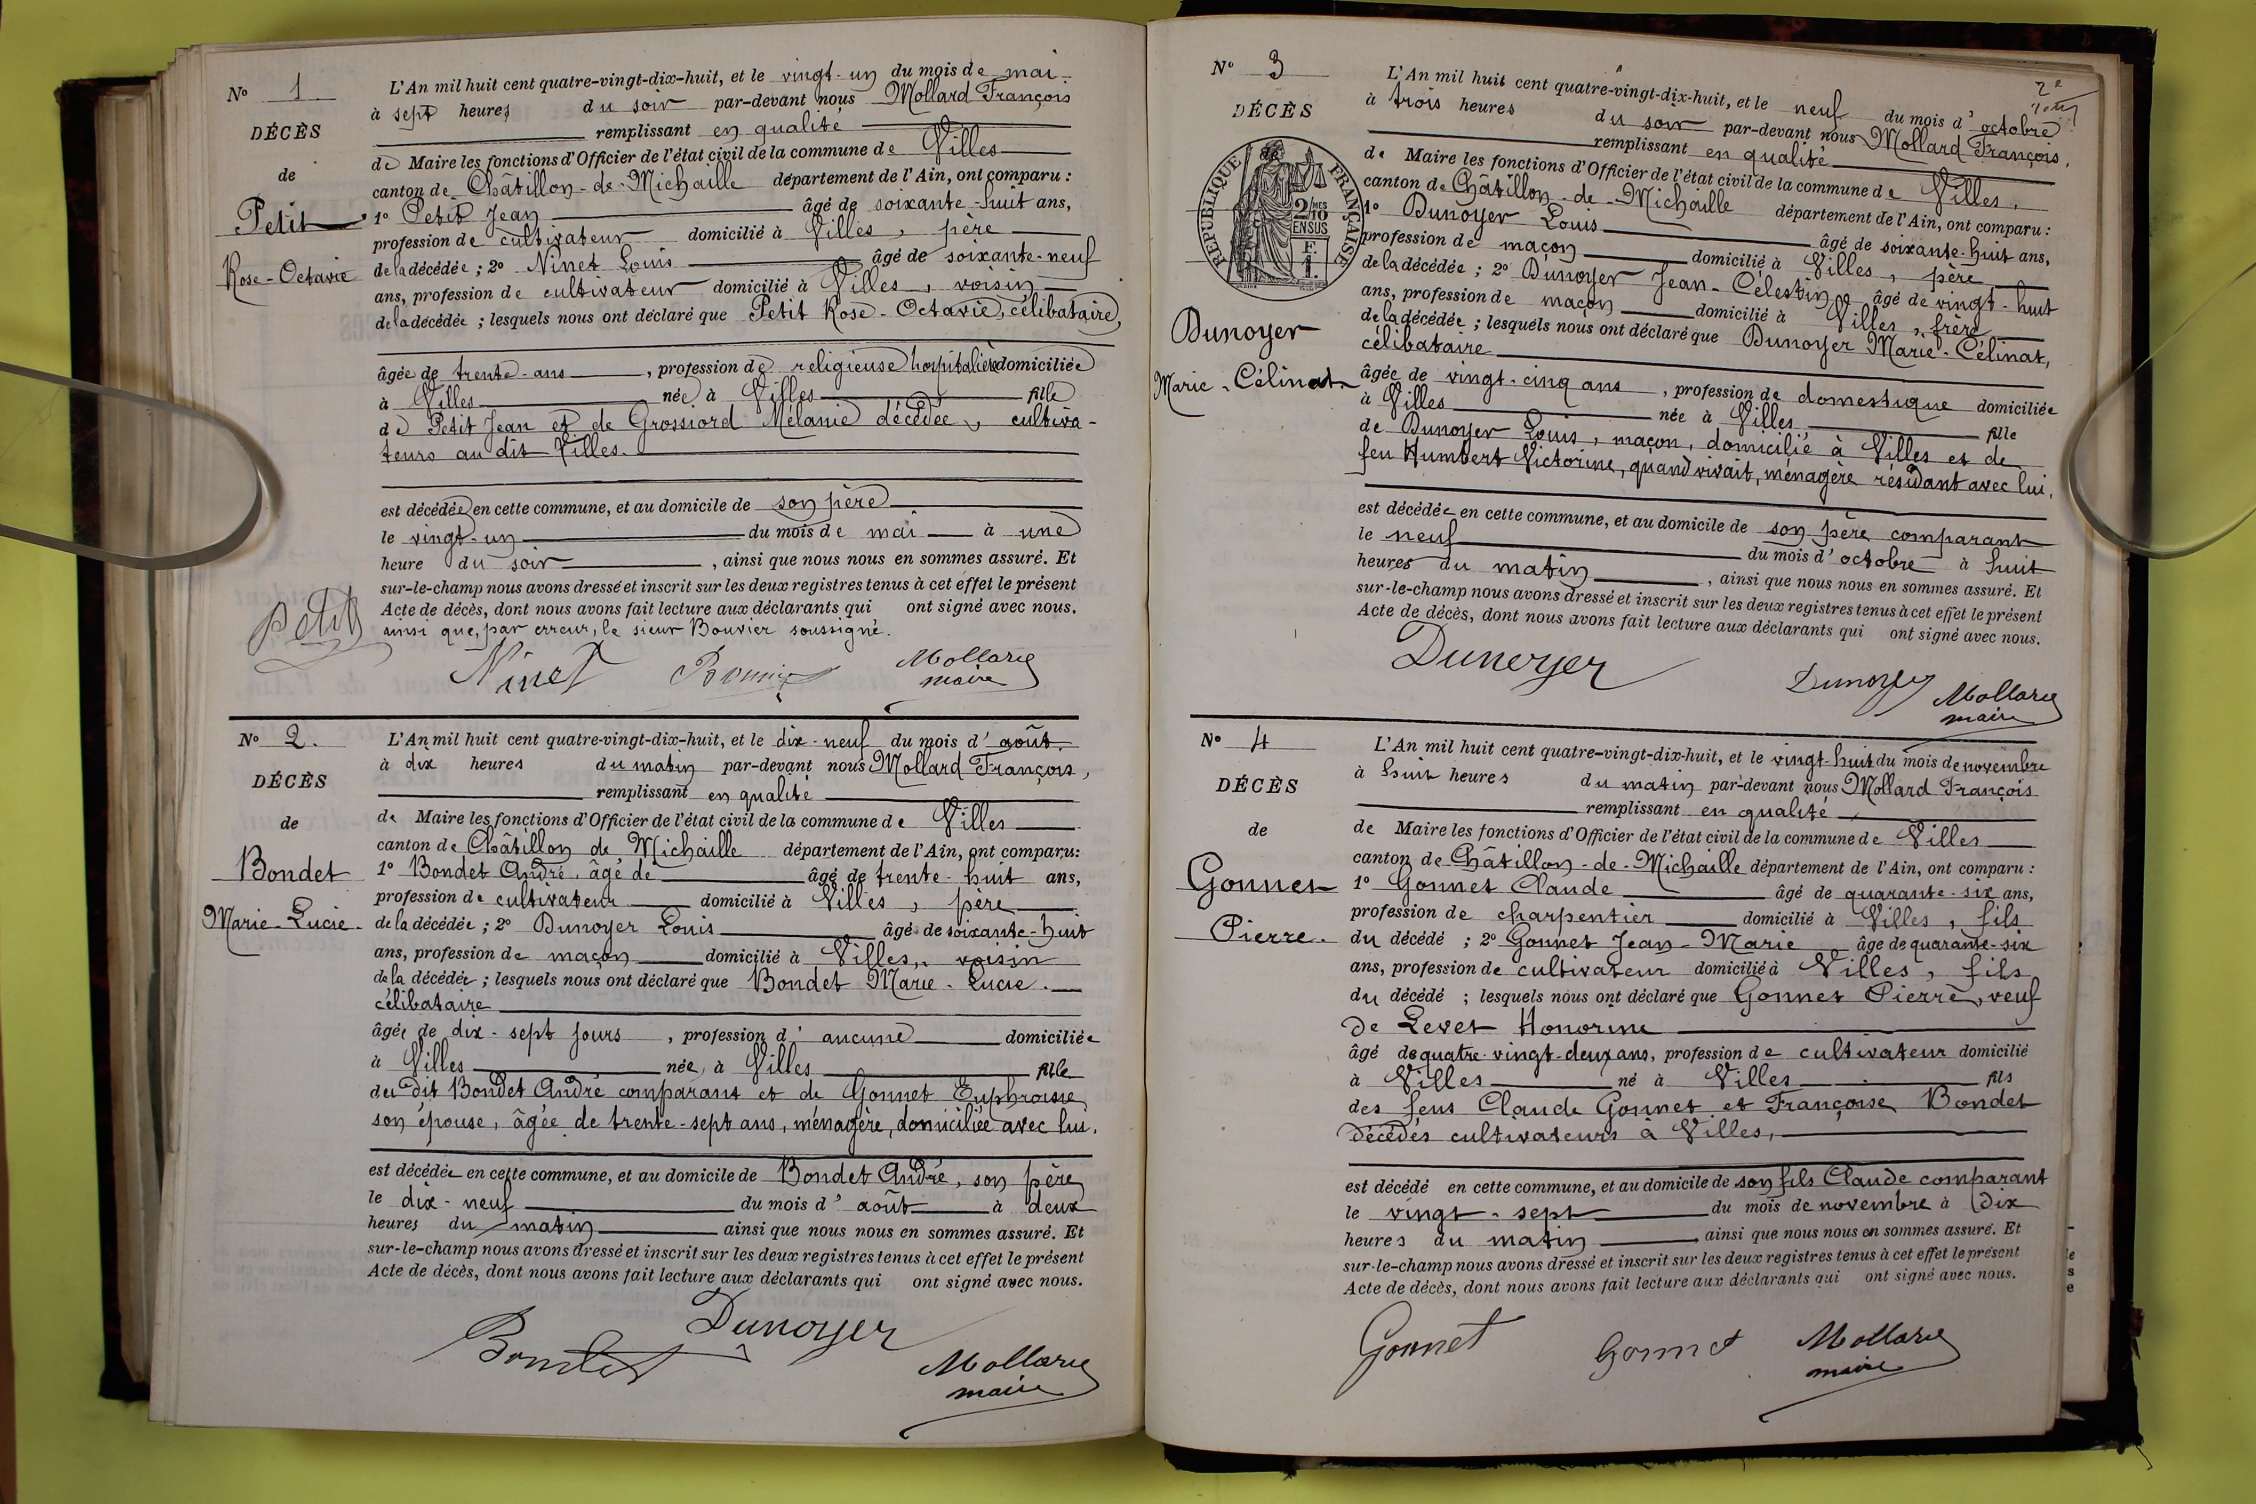 N° 1.
DÉCÈS
de
Petit
Rose-Octavie
L'An mil huit cent quatre-vingt-dix-huit, et le vingt-un du mois de mai
à sept heures du soir par-devant nous Mollard François
remplissant en qualité
de Maire les fonctions d'Officier de l'état civil de la commune de Villes
canton de Châtillon-de-Michaille département de l'Ain, ont comparu :
1° Petit Jean âgé de soixante-huit ans,
profession de cultivateur domicilié à Villes, père
de la décédée ; 2° Ninet Louis âgé de soixante-neuf
ans, profession de cultivateur domicilié à Villes, voisin
de la décédée ; lesquels nous ont déclaré que Petit Rose-Octavie, célibataire,
âgée de trente-ans, profession de religieuse hospitalière domiciliée
à Villes née à Villes fille
de Petit Jean et de Grossiord Mélanie décédée, cultiva-
teurs au dit Villes.
est décédée en cette commune, et au domicile de son père
le vingt-un du mois de mai à une
heure du soir, ainsi que nous nous en sommes assuré. Et
sur-le-champ nous avons dressé et inscrit sur les deux registres tenus à cet effet le présent
Acte de décès, dont nous avons fait lecture aux déclarants qui ont signé avec nous.
ainsi que, par erreur, le sieur Bouvier soussigné.
Petit
Ninet Bouvier Mollard
maire
N° 2.
DÉCÈS
de
Bondet
Marie-Lucie.
L'An mil huit cent quatre-vingt-dix-huit, et le dix-neuf du mois d'août
à dix heures du matin par-devant nous Mollard François,
remplissant en qualité
de Maire les fonctions d'Officier de l'état civil de la commune de Villes
canton de Châtillon de Michaille département de l'Ain, ont comparu :
1° Bondet André, âgé de âgé de trente-huit ans,
profession de cultivateur domicilié à Villes, père
de la décédée ; 2° Dunoyer Louis âgé de soixante-huit
ans, profession de maçon domicilié à Villes, voisin
de la décédée ; lesquels nous ont déclaré que Bondet Marie-Lucie.
célibataire
âgée de dix-sept jours, profession d'aucune domiciliée
à Villes née à Villes fille
du dit Bondet André comparant et de Gonnet Euphrosie
son épouse, âgée de trente-sept ans, ménagère, domiciliée avec lui.
est décédée en cette commune, et au domicile de Bondet André, son père
le dix-neuf du mois d'août à deux
heures du matin ainsi que nous nous en sommes assuré. Et
sur-le-champ nous avons dressé et inscrit sur les deux registres tenus à cet effet le présent
Acte de décès, dont nous avons fait lecture aux déclarants qui ont signé avec nous.
Bondet Dunoyer Mollard
maire
N° 3
DÉCÈS
de
RÉPUBLIQUE FRANÇAISE
2/10 MES
EN SUS
Dunoyer
Marie-Célinat
2e
L'An mil huit cent quatre-vingt-dix-huit, et le neuf du mois d'octobre
à trois heures du soir par-devant nous Mollard François,
remplissant en qualité
de Maire les fonctions d'Officier de l'état civil de la commune de Villes,
canton de Châtillon-de-Michaille département de l'Ain, ont comparu :
1° Dunoyer Louis âgé de soixante-huit ans,
profession de maçon domicilié à Villes, père
de la décédée ; 2° Dunoyer Jean-Célestin âgé de vingt-huit
ans, profession de maçon domicilié à Villes, frère
de la décédée ; lesquels nous ont déclaré que Dunoyer Marie-Célinat,
célibataire
âgée de vingt-cinq ans, profession de domestique domiciliée
à Villes née à Villes fille
de Dunoyer Louis, maçon, domicilié à Villes et de
feu Humbert Victorine, quand vivait, ménagère résidant avec lui.
est décédée en cette commune, et au domicile de son père comparant
le neuf du mois d'octobre à huit
heures du matin, ainsi que nous nous en sommes assuré. Et
sur-le-champ nous avons dressé et inscrit sur les deux registres tenus à cet effet le présent
Acte de décès, dont nous avons fait lecture aux déclarants qui ont signé avec nous.
Dunoyer Dunoyer Mollard
maire
N° 4
DÉCÈS
de
Gonnet
Pierre.
L'An mil huit cent quatre-vingt-dix-huit, et le vingt-huit du mois de novembre
à huit heures du matin par-devant nous Mollard François
remplissant en qualité
de Maire les fonctions d'Officier de l'état civil de la commune de Villes
canton de Châtillon-de-Michaille département de l'Ain, ont comparu :
1° Gonnet Claude âgé de quarante-six ans,
profession de charpentier domicilié à Villes, fils
du décédé ; 2° Gonnet Jean-Marie âge de quarante-six
ans, profession de cultivateur domicilié à Villes, fils
du décédé ; lesquels nous ont déclaré que Gonnet Pierre, veuf
de Levet Honorine
âgé de quatre-vingt-deux ans, profession de cultivateur domicilié
à Villes né à Villes fils
des feus Claude Gonnet et Françoise Bondet
décédés cultivateurs à Villes,
est décédé en cette commune, et au domicile de son fils Claude comparant
le vingt-sept du mois de novembre à dix
heures du matin ainsi que nous nous en sommes assuré. Et
sur-le-champ nous avons dressé et inscrit sur les deux registres tenus à cet effet le présent
Acte de décès, dont nous avons fait lecture aux déclarants qui ont signé avec nous.
Gonnet Gonnet Mollard
maire